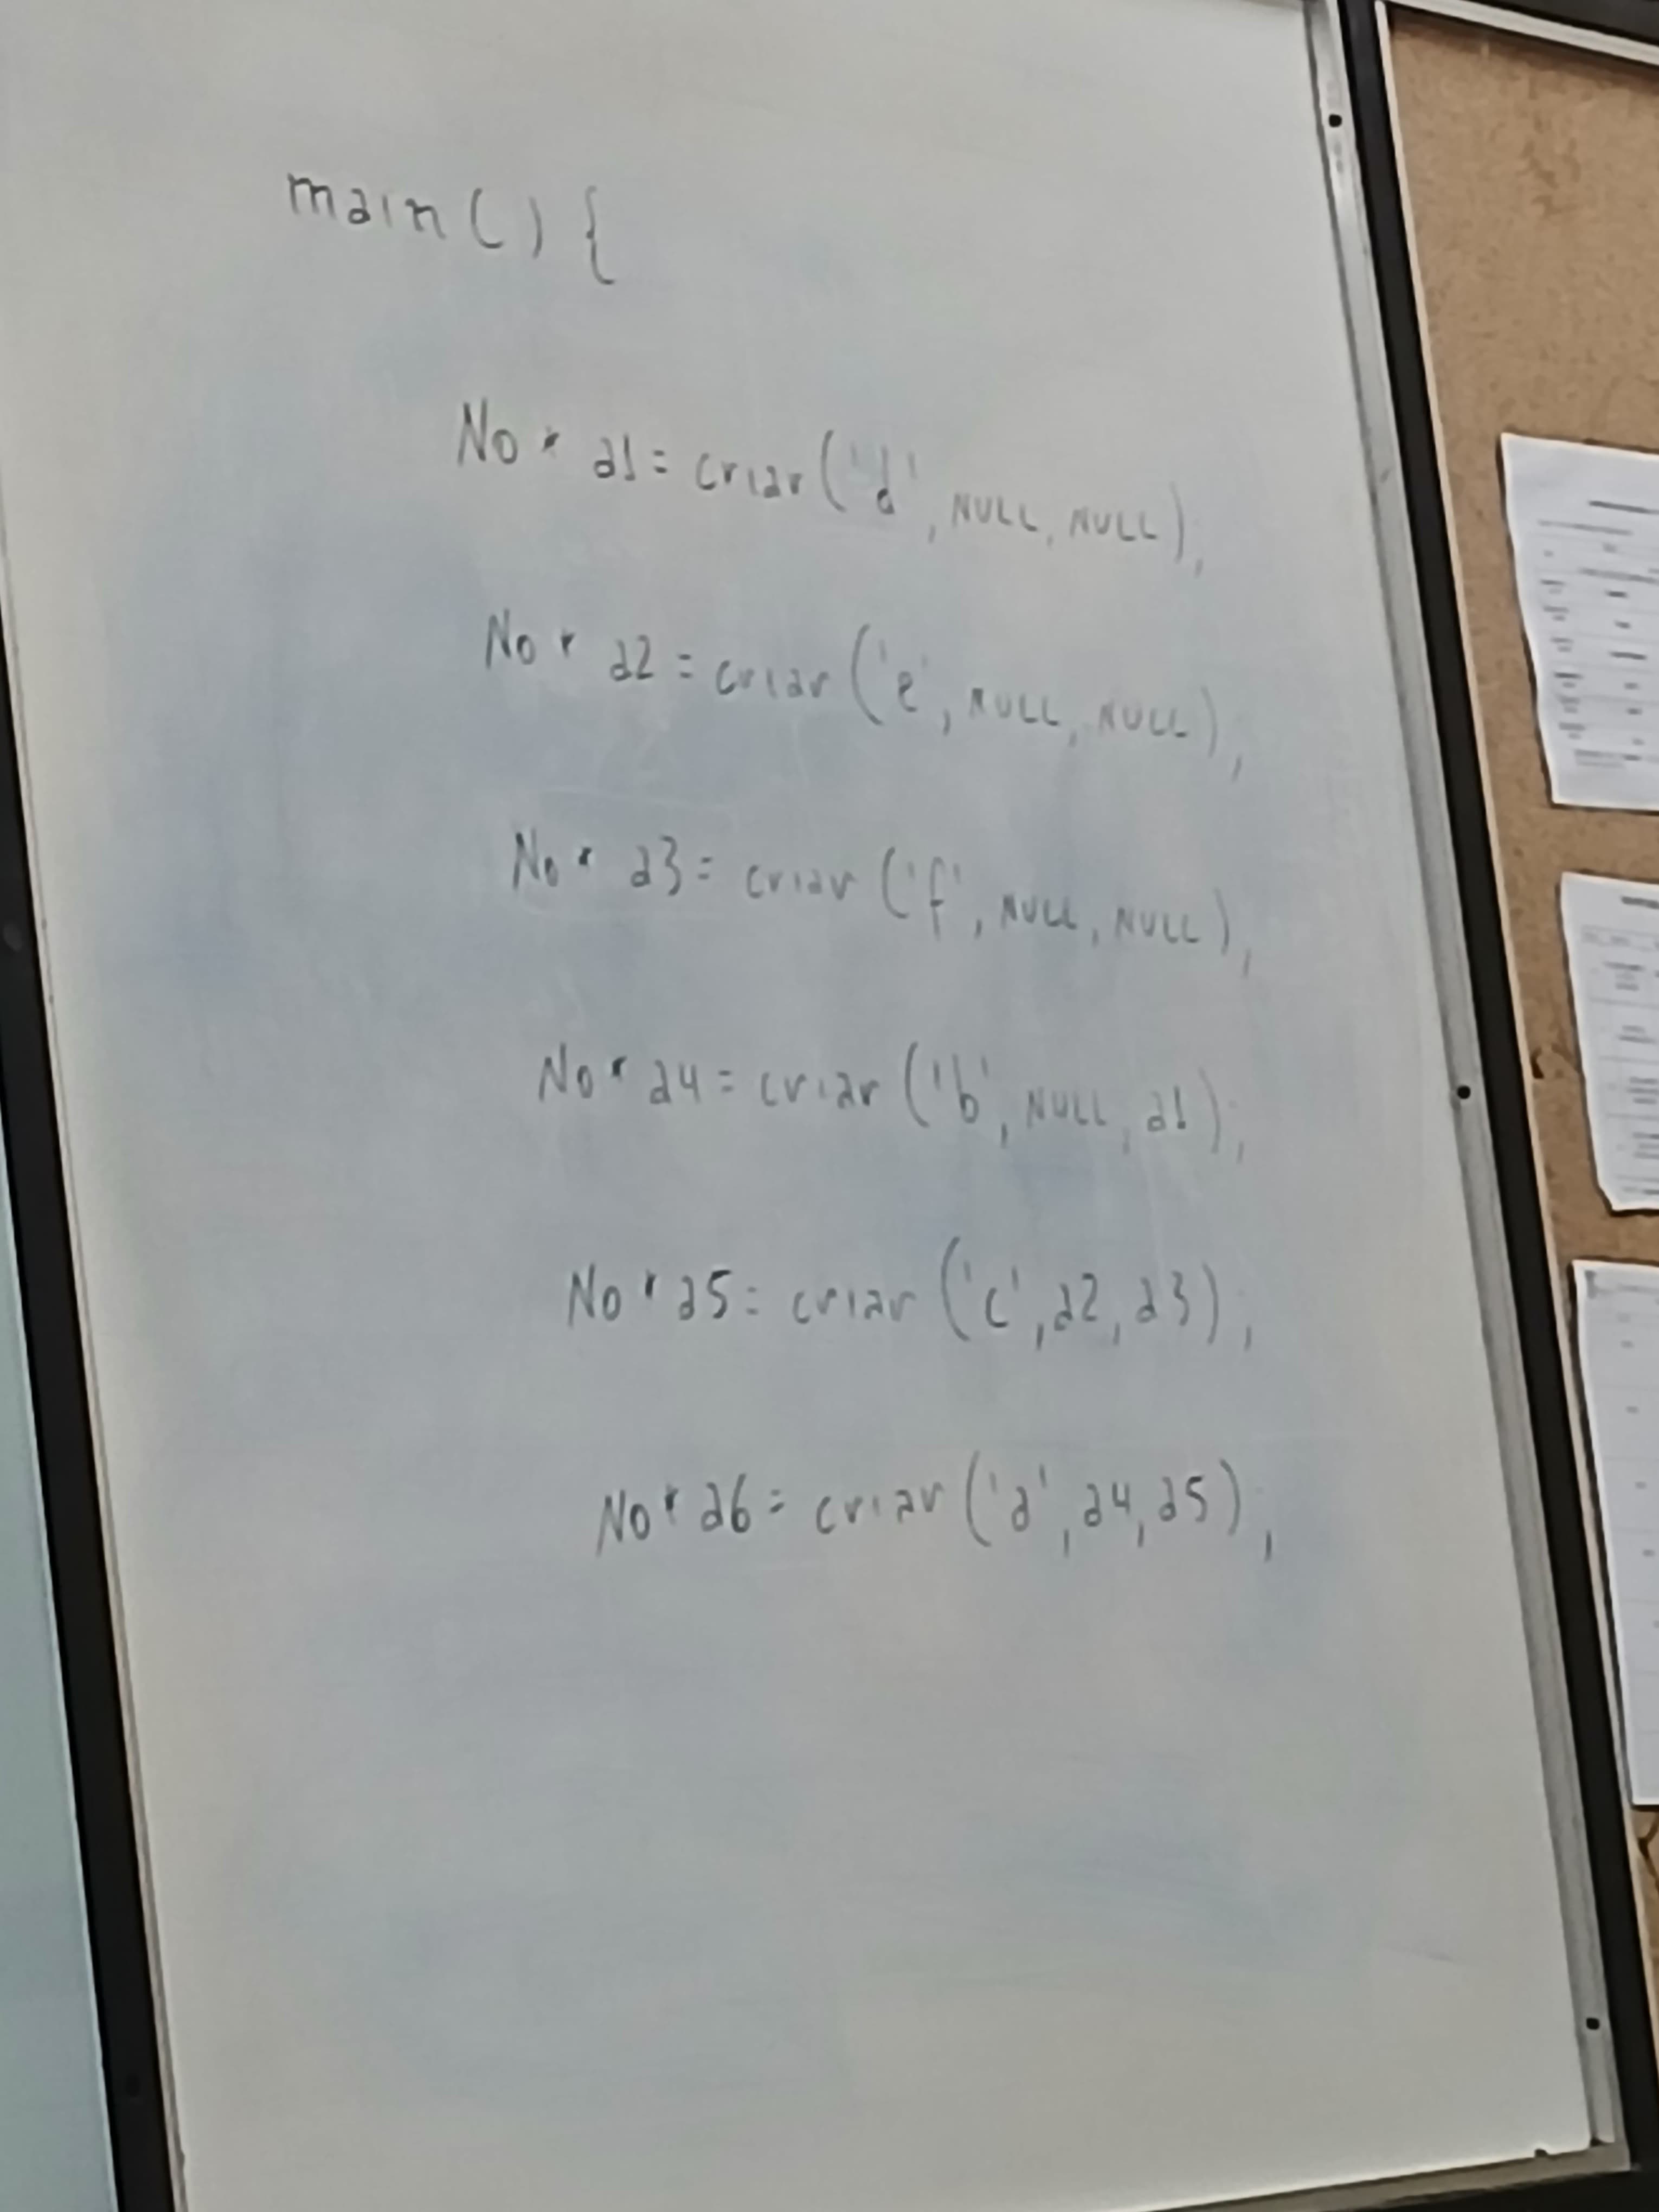 main() {
No * a1 = criar('d', NULL, NULL);
No * a2 = criar('e', NULL, NULL);
No * a3 = criar('f', NULL, NULL);
No * a4 = criar('b', NULL, a1);
No * a5 = criar('c', a2, a3);
No * a6 = criar('a', a4, a5);